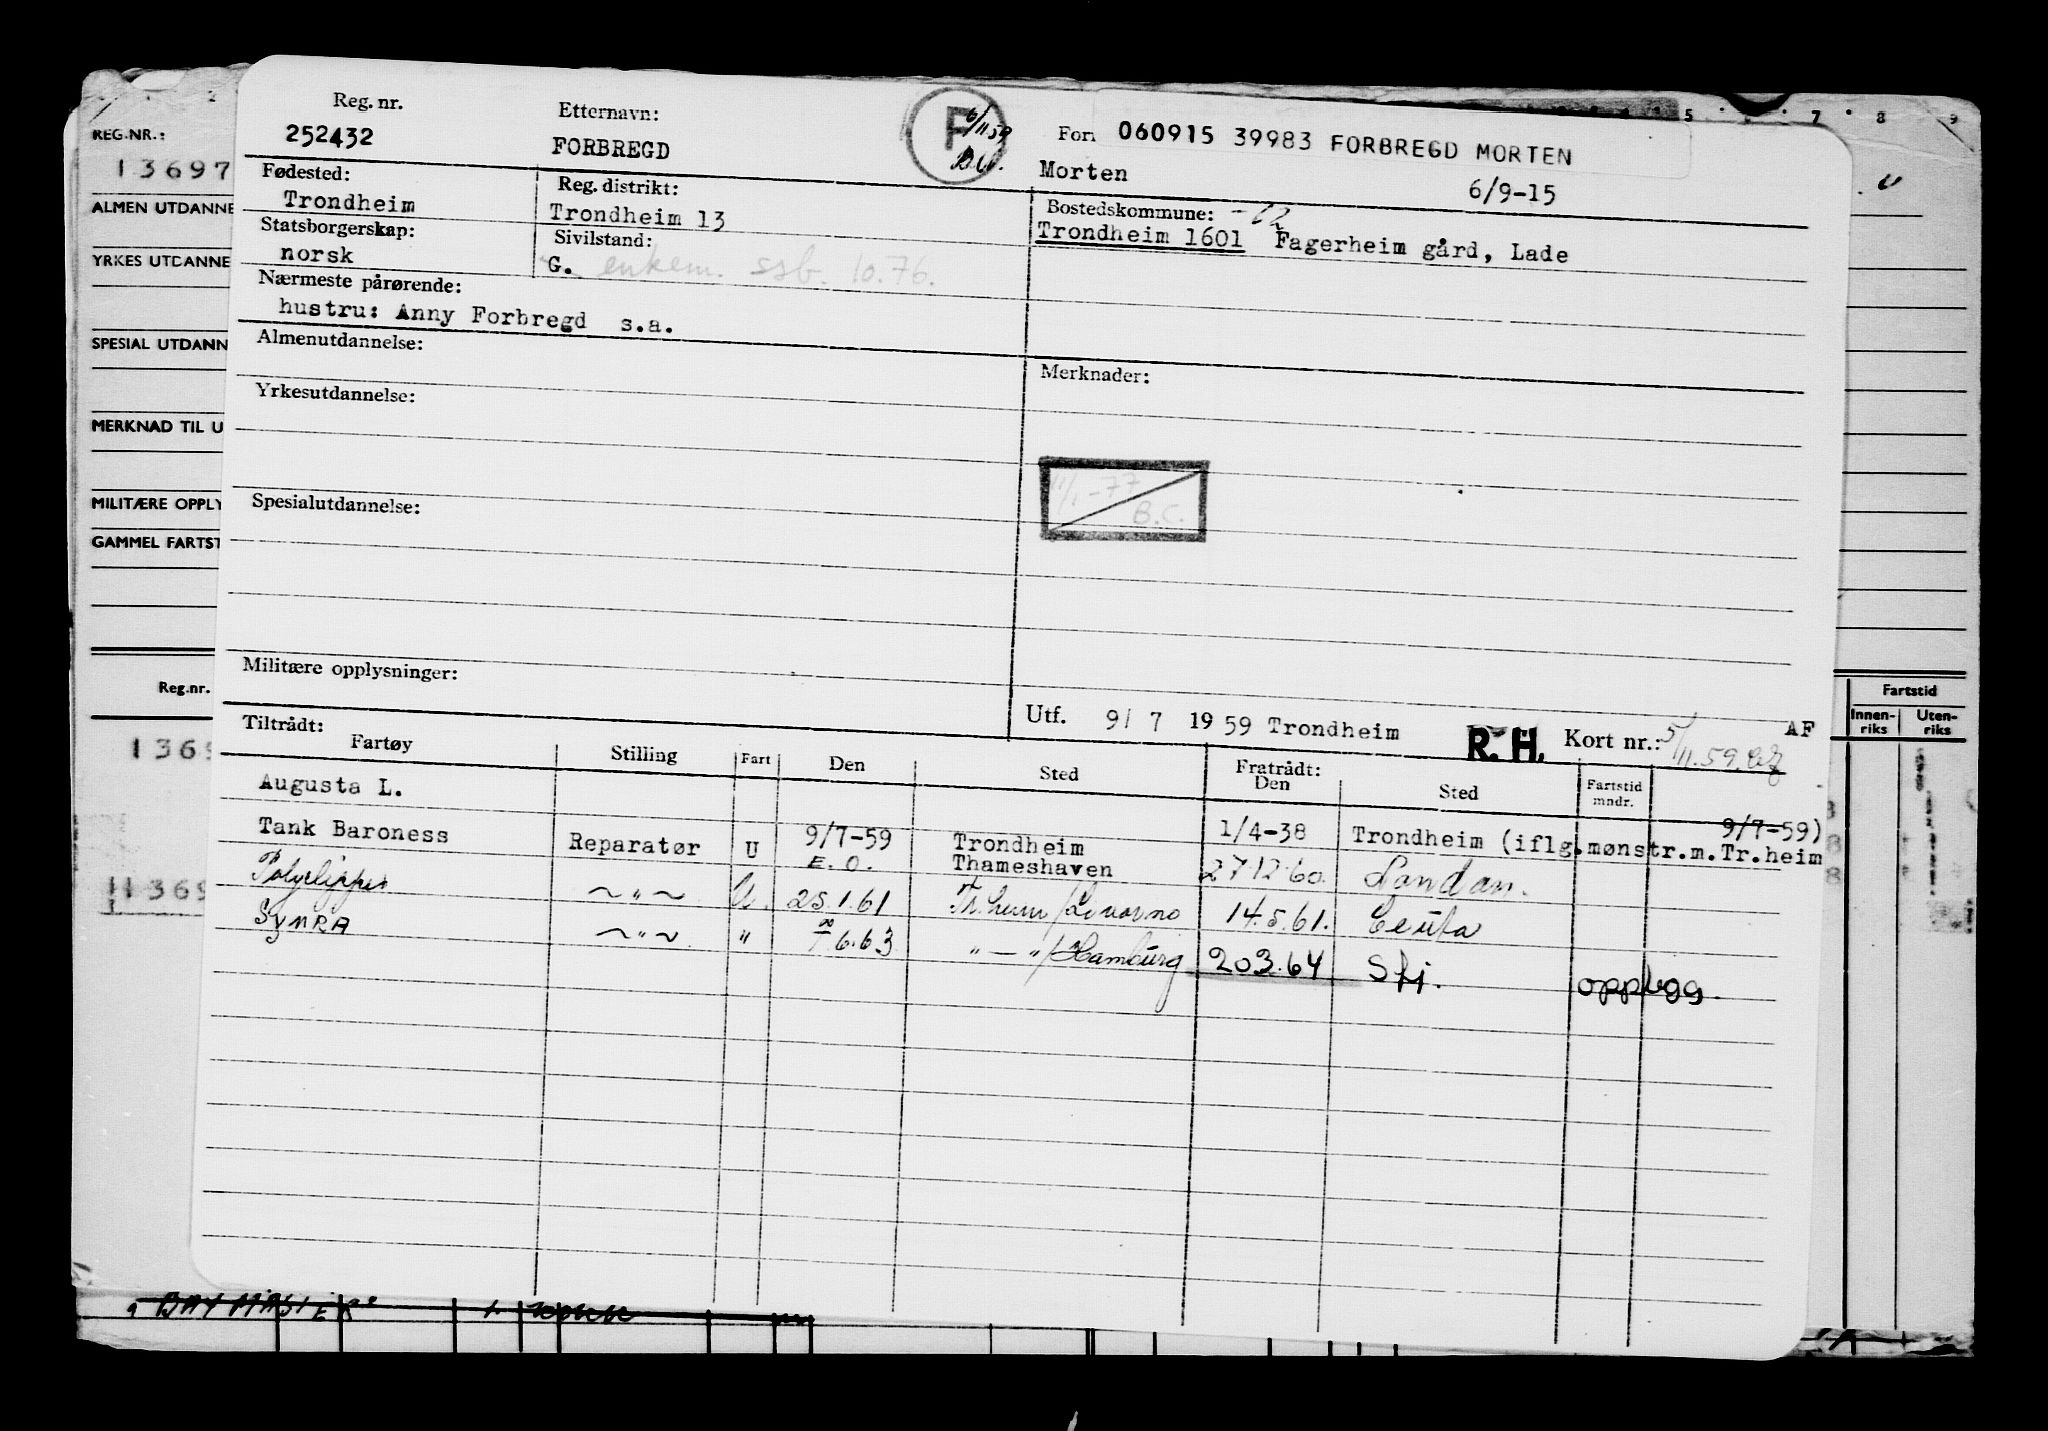 Reg. nr. Etternavn: For. 060915 39983 FORBREGD MORTEN
252432 FORBREGD Morten 6/9-15
F 6/11 59
Fødested: Reg. distrikt: Bostedskommune: -62
Trondheim Trondheim 13 Trondheim 1601 Fagerheim gård, Lade
Statsborgerskap: Sivilstand:
norsk G. enkem. ssb. 10.76.
Nærmeste pårørende:
hustru: Anny Forbregd s.a.
Almenutdannelse: Merknader:
Yrkesutdannelse:
11/1-77
B.C.
Spesialutdannelse:
Militære opplysninger:
Utf. 9/ 7 1959 Trondheim R.H. Kort nr.: 5/11.59. AF
Tiltrådt: Fratrådt:
Fartøy Stilling Fart Den Sted Den Sted Fartstid mndr.
Augusta L. 1/4-38 Trondheim (iflg.mønstr.m.Tr.heim 9/7-59)
Tank Baroness Reparatør U 9/7-59 Trondheim
E.O. Thameshaven 27.12.60. London.
Polyclipper ~"~ U. 25.1.61 Tr.heim/Livorno 14.5.61. Ceuta
SYMRA ~"~ " 6.63 "—"/Hamburg 203.64 Sfj. opplygg.
REG.NR.:
13697
ALMEN UTDANNE
YRKES UTDANNE
SPESIAL UTDANN
MERKNAD TIL U
MILITÆRE OPPLY
GAMMEL FARTST
Reg.nr.
1369
11369
5 7 8 9
Fartstid
Innen-riks Uten-riks
8
8
BAYMASTER